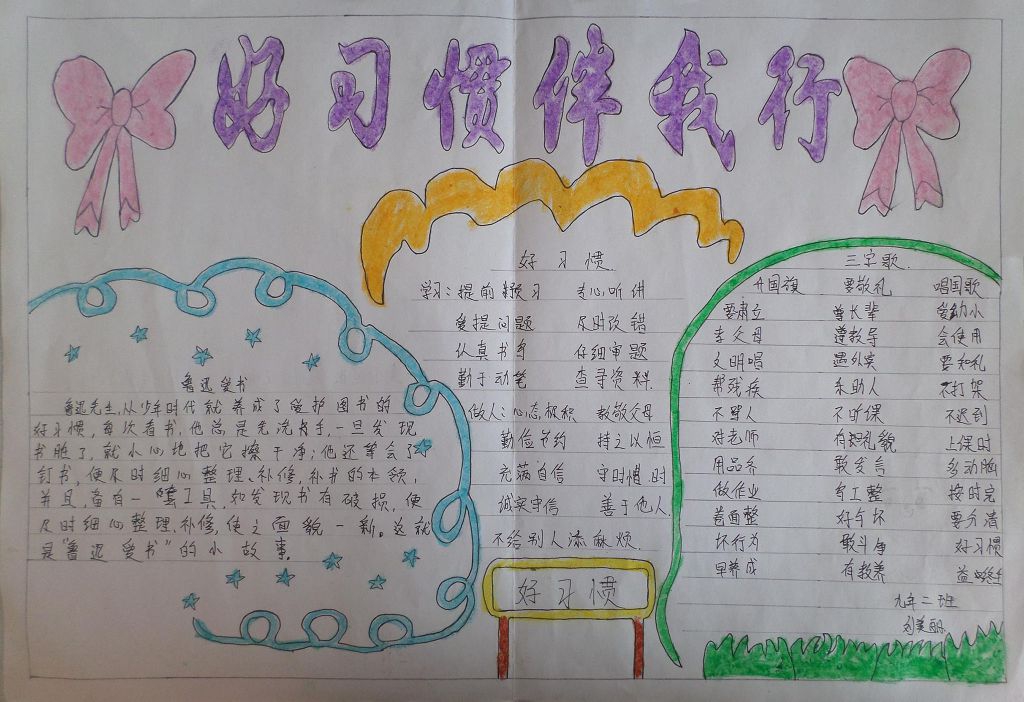 好习惯伴我行
鲁迅爱书
鲁迅先生,从少年时代就养成了爱护图书的
好习惯,每次看书,他总是先洗洗手,一旦发现
书脏了,就小心地把它擦干净;他还学会了
钉书,便及时细心整理、补修,补书的本领,
并且,备有一套工具,如发现书有破损,便
及时细心整理、补修,使之面貌一新。这就
是“鲁迅爱书”的小故事。
好习惯
学习:提前预习 专心听讲
爱提问题 及时改错
认真书写 仔细审题
勤于动笔 查寻资料
做人:心态积极 孝敬父母
勤俭节约 持之以恒
充满自信 守时惜时
诚实守信 善于他人
不给别人添麻烦
好习惯
三字歌
升国旗 要敬礼 唱国歌
要肃立 尊长辈 爱幼小
孝父母 尊教导 会使用
文明唱 遇外宾 要知礼
帮残疾 乐助人 不打架
不骂人 不旷课 不迟到
对老师 有礼貌 上课时
用品齐 敢发言 多动脑
做作业 写工整 按时完
卷面整 好与坏 要分清
坏行为 敢斗争 好习惯
早养成 有教养 益终生
九年二班
刘美丽